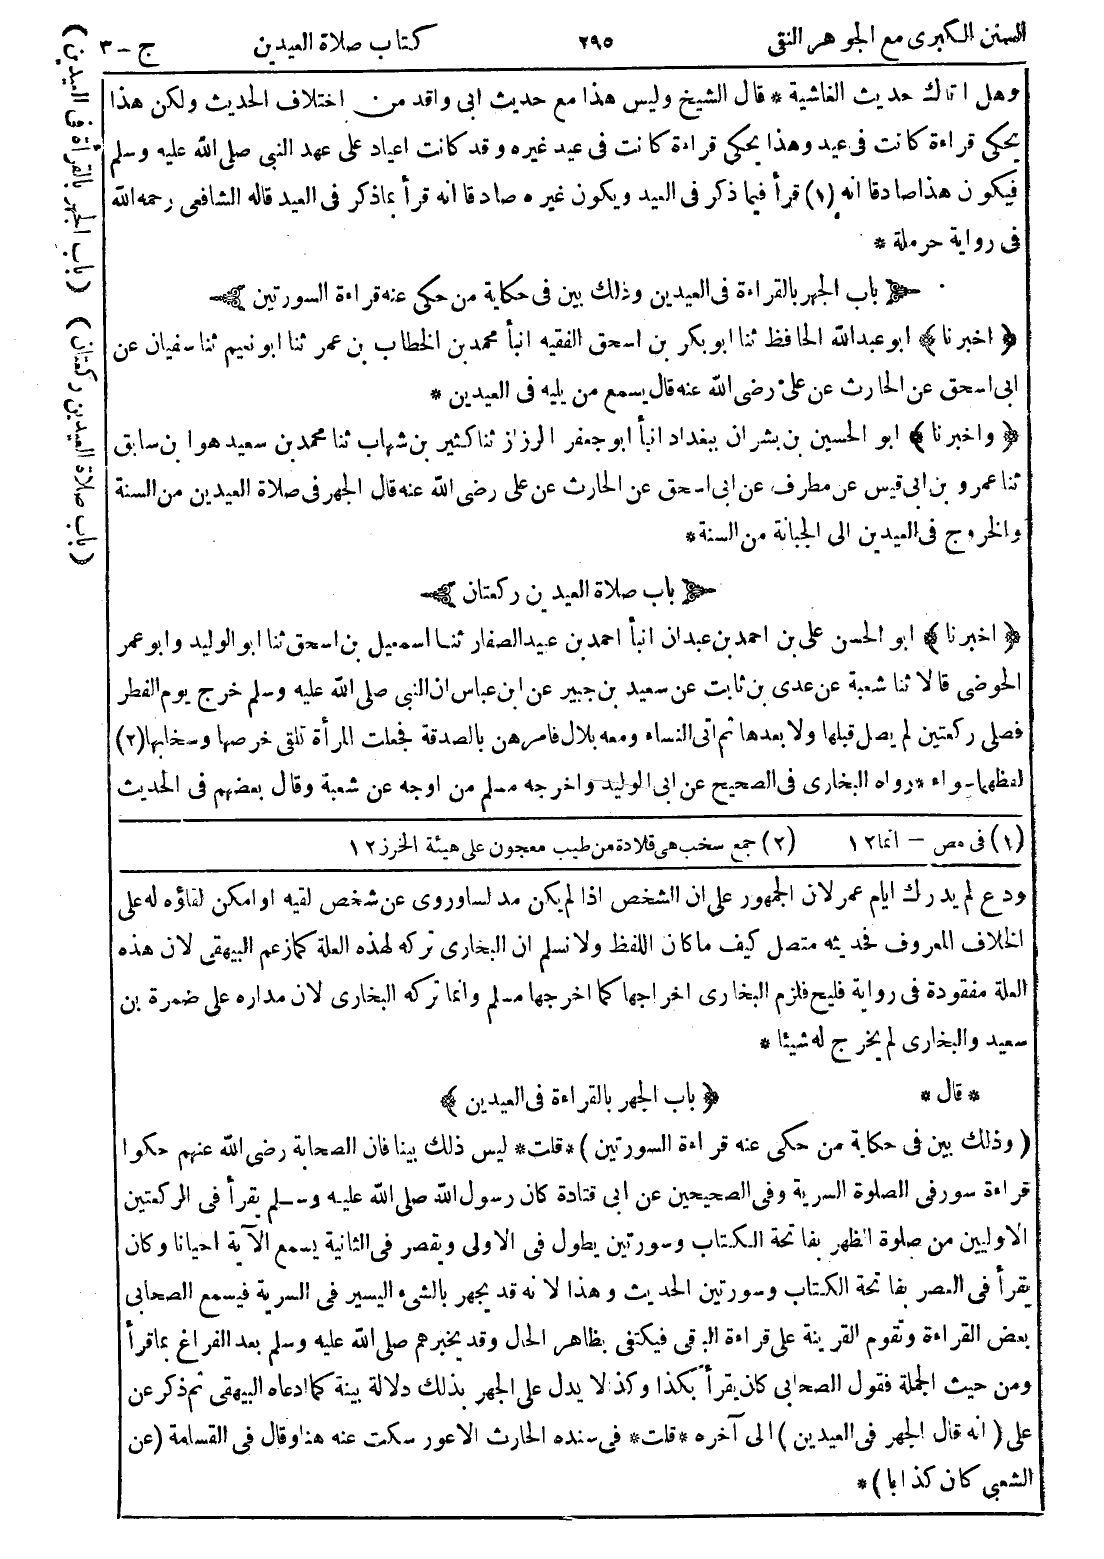 السنن الكبرى مع الجوهر النقى ٢٩٥ كتاب صلاة العيدين ج - ٣
وهل اتاك حديث الغاشية * قال الشيخ وليس هذا مع حديث ابى واقد من اختلاف الحديث ولكن هذا
يحكى قراءة كانت فى عيد وهذا يحكى قراءة كانت فى عيد غيره وقد كانت اعياد على عهد النبى صلى الله عليه وسلم
فيكون هذا صادقا انه (١) قرأ فيما ذكر فى العيد ويكون غيره صادقا انه قرأ بماذكر فى العيد قاله الشافعى رحمه الله
فى رواية حرملة *
باب الجهر بالقراءة فى العيدين وذلك بين فى حكاية من حكى عنه قراءة السورتين
﴿ اخبرنا ﴾ ابو عبدالله الحافظ ثنا ابوبكر بن اسحق الفقيه انبأ محمد بن الخطاب بن عمر ثنا ابو نعيم ثنا سفيان عن
ابى اسحق عن الحارث عن على رضى الله عنه قال يسمع من يليه فى العيدين *
﴿ واخبرنا ﴾ ابو الحسين بن بشران ببغداد انبأ ابو جعفر الرزاز ثنا كثير بن شهاب ثنا محمد بن سعيد هو ابن سابق
ثنا عمرو بن ابى قيس عن مطرف عن ابى اسحق عن الحارث عن على رضى الله عنه قال الجهر فى صلاة العيدين من السنة
والخروج فى العيدين الى الجبانة من السنة *
باب صلاة العيدين ركعتان
﴿ اخبرنا ﴾ ابو الحسن على بن احمد بن عبدان انبأ احمد بن عبيد الصفار ثنا اسمعيل بن اسحق ثنا ابو الوليد وابو عمر
الحوضى قالا ثنا شعبة عن عدى بن ثابت عن سعيد بن جبير عن ابن عباس ان النبى صلى الله عليه وسلم خرج يوم الفطر
فصلى ركعتين لم يصل قبلها ولا بعدها ثم اتى النساء ومعه بلال فامرهن بالصدقة فجعلت المرأة تلقى خرصها وسخابها (٢)
لفظهما سواء * رواه البخارى فى الصحيح عن ابى الوليد واخرجه مسلم من اوجه عن شعبة وقال بعضهم فى الحديث
(١) فى مص - انما ١٢ (٢) جمع سخب هى قلادة من طيب معجون على هيئة الخرز ١٢
ودع لم يدرك ايام عمر لان الجمهور على ان الشخص اذا لم يكن مدلسا وروى عن شخص لقيه او امكن لقاؤه له على
الخلاف المعروف فحديثه متصل كيف ماكان اللفظ ولا نسلم ان البخارى تركه لهذه العلة كمازعم البيهقى لان هذه
العلة مفقودة فى رواية فليح فلزم البخارى اخراجها كما اخرجها مسلم وانما تركه البخارى لان مداره على ضمرة بن
سعيد والبخارى لم يخرج له شيئا *
* قال * ﴿ باب الجهر بالقراءة فى العيدين ﴾
( وذلك بين فى حكاية من حكى عنه قراءة السورتين ) * قلت * ليس ذلك بينا فان الصحابة رضى الله عنهم حكوا
قراءة سور فى الصلوة السرية وفى الصحيحين عن ابى قتادة كان رسول الله صلى الله عليه وسلم يقرأ فى الركعتين
الاوليين من صلوة الظهر بفاتحة الكتاب وسورتين يطول فى الاولى ويقصر فى الثانية يسمع الآية احيانا وكان
يقرأ فى العصر بفاتحة الكتاب وسورتين الحديث وهذا لانه قد يجهر بالشىء اليسير فى السرية فيسمع الصحابى
بعض القراءة وتقوم القرينة على قراءة الباقى فيكتفى بظاهر الحال وقد يخبرهم صلى الله عليه وسلم بعد الفراغ بماقرأ
ومن حيث الجملة فقول الصحابى كان يقرأ بكذا وكذا لا يدل على الجهر بذلك دلالة بينة كماادعاه البيهقى ثم ذكر عن
على ( انه قال الجهر فى العيدين ) الى آخره * قلت * فى سنده الحارث الاعور سكت عنه هنا وقال فى القسامة (عن
الشعبى كان كذابا ) *
( باب الجهر بالقرأة فى العيدين )
( باب صلاة العيدين ركعتان )